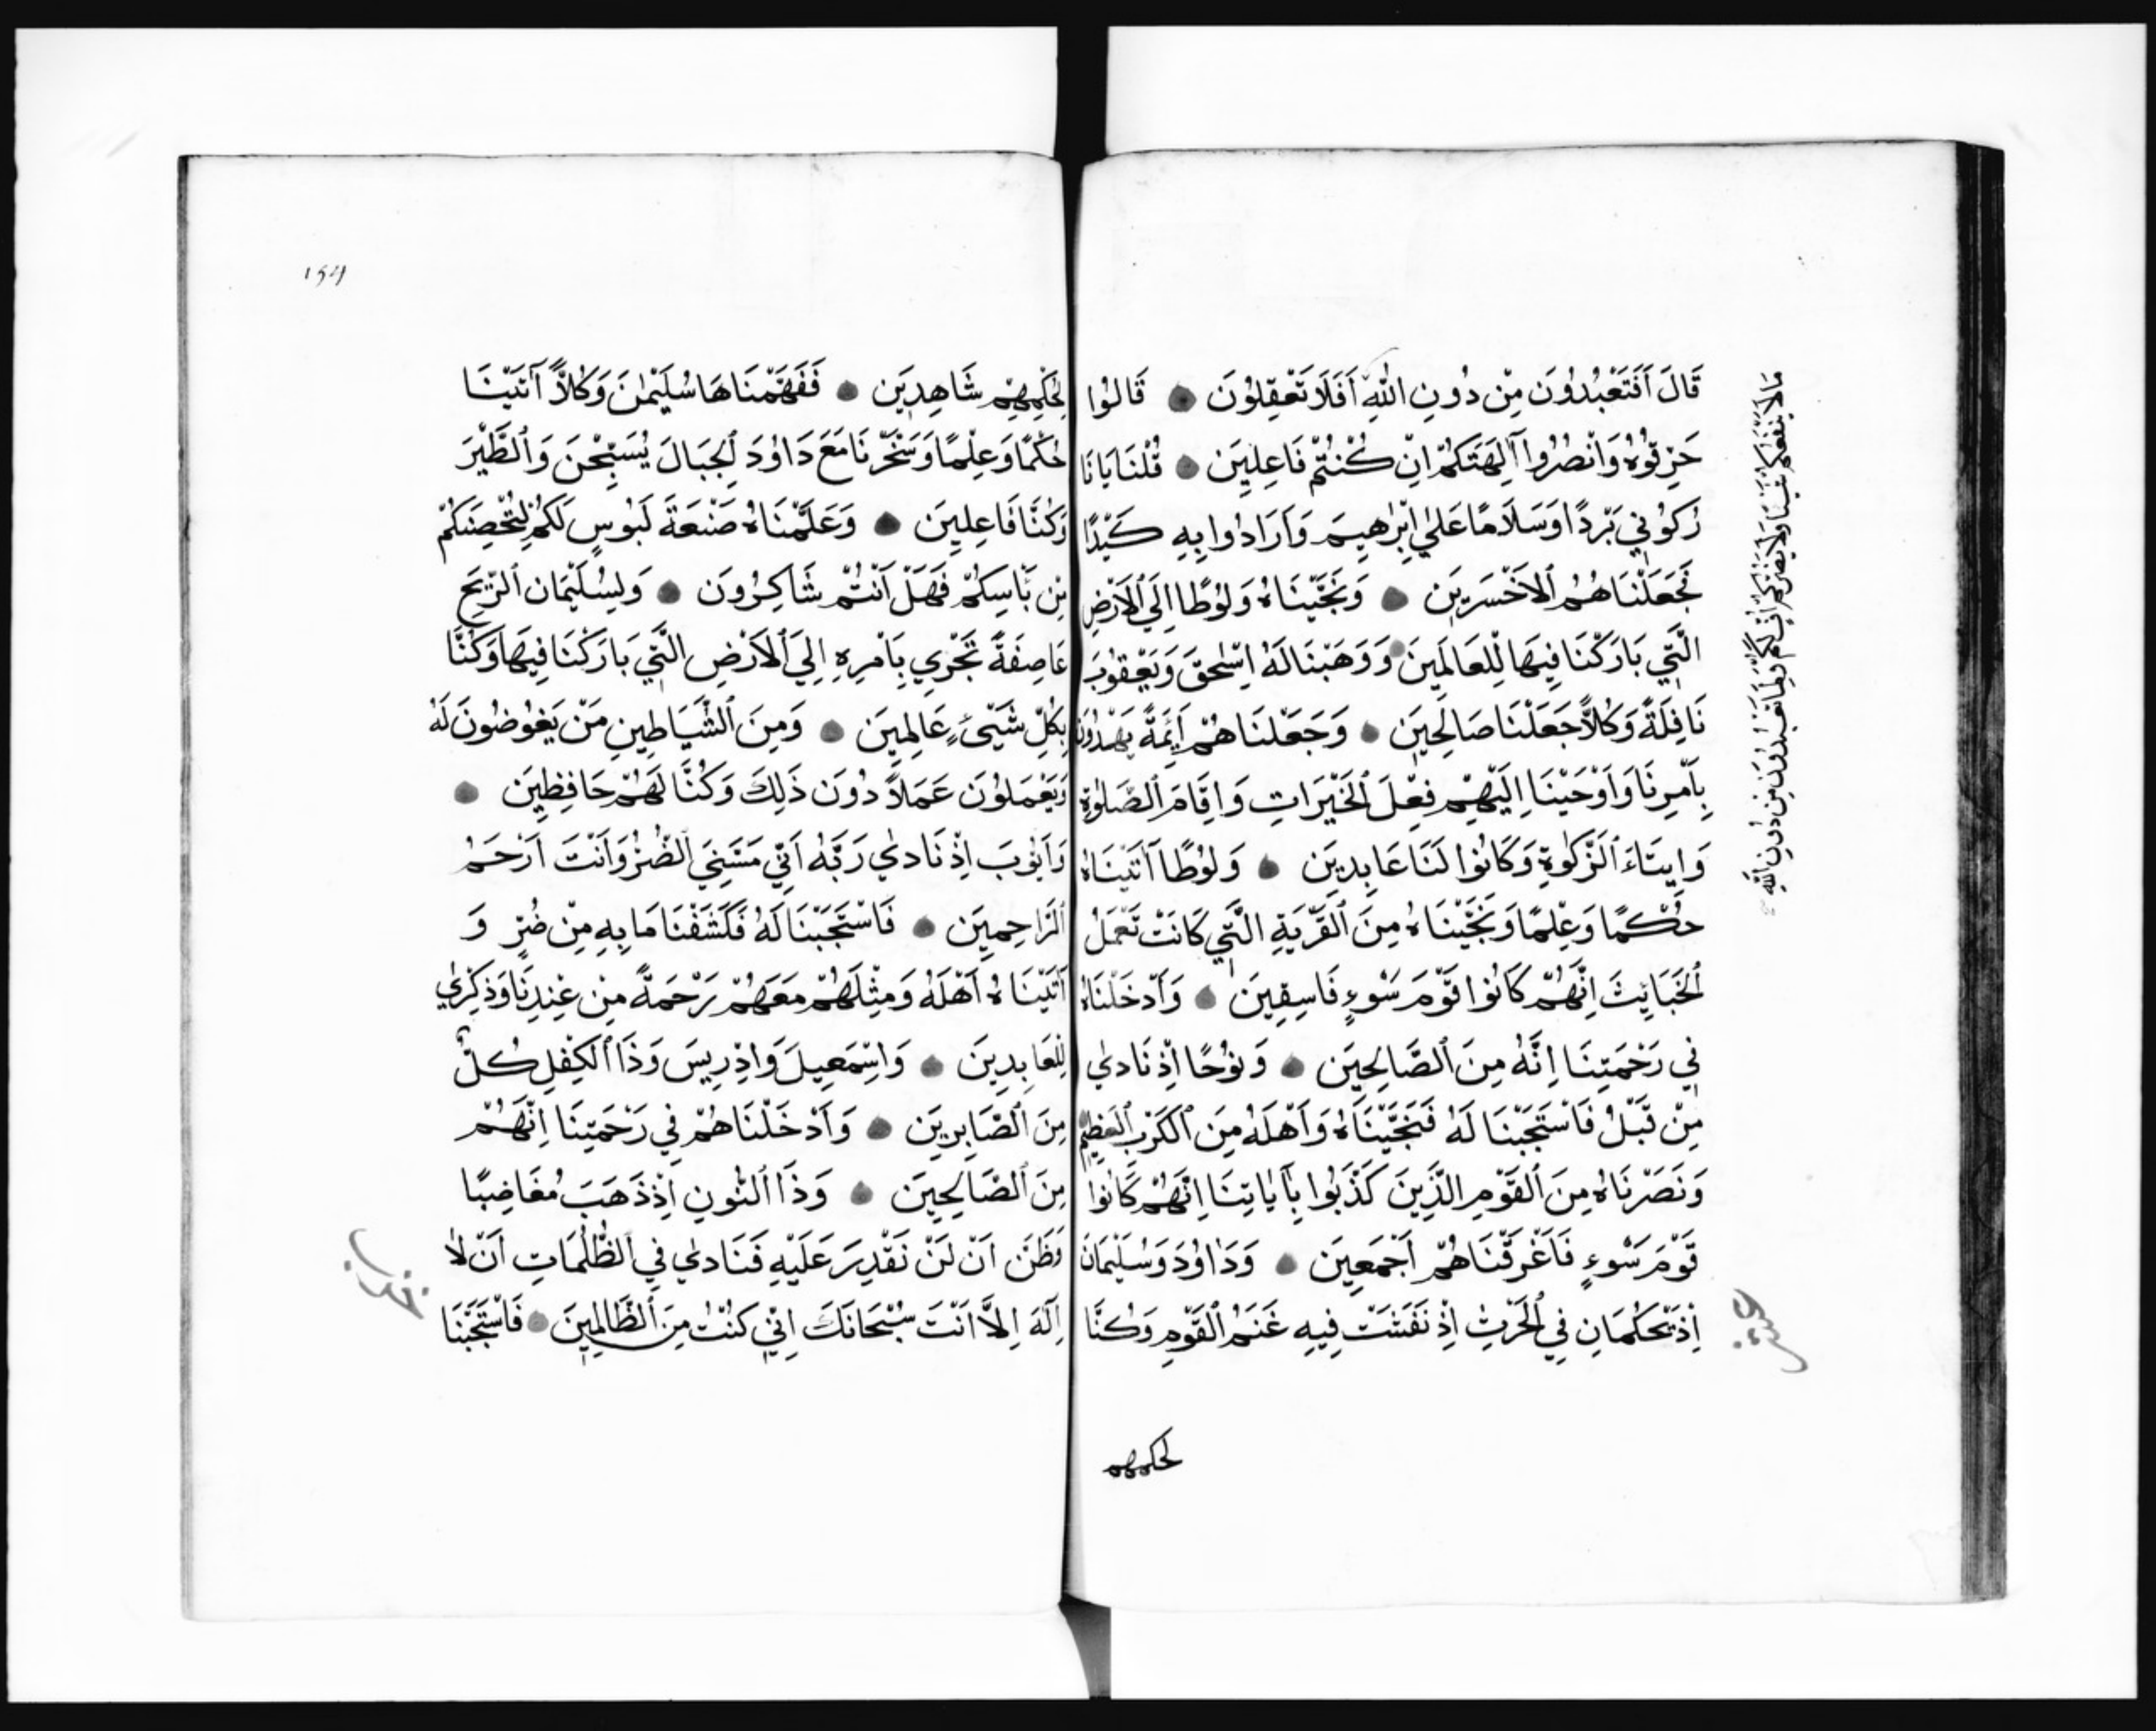 قَالَ اَفَتَعْبُدُونَ مِنْ دُونِ اللّٰهِ اَفَلَا تَعْقِلُونَ ۝ قَالُوا
حَرِّقُوهُ وَانْصُرُوا آلِهَتَكُمْ اِنْ كُنْتُمْ فَاعِلِينَ ۝ قُلْنَا يَا نَا
رُكُونِي بَرْدًا وَسَلَامًا عَلٰي اِبْرٰهِيمَ وَاَرَادُوا بِهِ كَيْدًا
فَجَعَلْنَاهُمُ ٱلْاَخْسَرِينَ ۝ وَنَجَّيْنَاهُ وَلُوطًا اِلَي ٱلْاَرْضِ
الَّتِي بَارَكْنَا فِيهَا لِلْعَالَمِينَ ۝ وَوَهَبْنَا لَهُ اِسْحٰقَ وَيَعْقُوبَ
نَافِلَةً وَكُلًّا جَعَلْنَا صَالِحِينَ ۝ وَجَعَلْنَاهُمْ اَئِمَّةً يَهْدُونَ
بِاَمْرِنَا وَاَوْحَيْنَا اِلَيْهِمْ فِعْلَ ٱلْخَيْرَاتِ وَاِقَامَ ٱلصَّلٰوةِ
وَاِيتَاءَ ٱلزَّكٰوةِ وَكَانُوا لَنَا عَابِدِينَ ۝ وَلُوطًا اٰتَيْنَاهُ
حُكْمًا وَعِلْمًا وَنَجَّيْنَاهُ مِنَ ٱلْقَرْيَةِ الَّتِي كَانَتْ تَعْمَلُ
ٱلْخَبَايِثَ اِنَّهُمْ كَانُوا قَوْمَ سَوْءٍ فَاسِقِينَ ۝ وَاَدْخَلْنَاهُ
فِي رَحْمَتِنَا اِنَّهُ مِنَ ٱلصَّالِحِينَ ۝ وَنُوحًا اِذْ نَادٰي
مِنْ قَبْلُ فَاسْتَجَبْنَا لَهُ فَنَجَّيْنَاهُ وَاَهْلَهُ مِنَ ٱلْكَرْبِ ٱلْعَظِيمِ
وَنَصَرْنَاهُ مِنَ ٱلْقَوْمِ الَّذِينَ كَذَّبُوا بِآيَاتِنَا اِنَّهُمْ كَانُوا
قَوْمَ سَوْءٍ فَاَغْرَقْنَاهُمْ اَجْمَعِينَ ۝ وَدَاوُدَ وَسُلَيْمَانَ
اِذْ يَحْكُمَانِ فِي ٱلْحَرْثِ اِذْ نَفَشَتْ فِيهِ غَنَمُ ٱلْقَوْمِ وَكُنَّا
لحكمهم
مَا لَا يَنْفَعُكُمْ شَيْئًا وَلَا يَضُرُّكُمْ اُفٍّ لَكُمْ وَلِمَا تَعْبُدُونَ مِنْ دُونِ اللّٰهِ
عشر
لِحُكْمِهِمْ شَاهِدِينَ ۝ فَفَهَّمْنَاهَا سُلَيْمٰنَ وَكُلًّا آتَيْنَا
حُكْمًا وَعِلْمًا وَسَخَّرْنَا مَعَ دَاوُدَ ٱلْجِبَالَ يُسَبِّحْنَ وَٱلطَّيْرَ
وَكُنَّا فَاعِلِينَ ۝ وَعَلَّمْنَاهُ صَنْعَةَ لَبُوسٍ لَكُمْ لِتُحْصِنَكُمْ
مِنْ بَاْسِكُمْ فَهَلْ اَنْتُمْ شَاكِرُونَ ۝ وَلِسُلَيْمَانَ ٱلرِّيحَ
عَاصِفَةً تَجْرِي بِاَمْرِهِ اِلَي ٱلْاَرْضِ الَّتِي بَارَكْنَا فِيهَا وَكُنَّا
بِكُلِّ شَيْئٍ عَالِمِينَ ۝ وَمِنَ ٱلشَّيَاطِينِ مَنْ يَغُوضُونَ لَهُ
وَيَعْمَلُونَ عَمَلًا دُونَ ذَلِكَ وَكُنَّا لَهُمْ حَافِظِينَ ۝
وَاَيُّوبَ اِذْ نَادٰي رَبَّهُ اَنِّي مَسَّنِيَ ٱلضُّرُّ وَاَنْتَ اَرْحَمُ
ٱلرَّاحِمِينَ ۝ فَاسْتَجَبْنَا لَهُ فَكَشَفْنَا مَا بِهِ مِنْ ضُرٍّ وَ
آتَيْنَاهُ اَهْلَهُ وَمِثْلَهُمْ مَعَهُمْ رَحْمَةً مِنْ عِنْدِنَا وَذِكْرٰي
لِلْعَابِدِينَ ۝ وَاِسْمَعِيلَ وَاِدْرِيسَ وَذَا ٱلْكِفْلِ كُلٌّ
مِنَ ٱلصَّابِرِينَ ۝ وَاَدْخَلْنَاهُمْ فِي رَحْمَتِنَا اِنَّهُمْ
مِنَ ٱلصَّالِحِينَ ۝ وَذَا ٱلنُّونِ اِذْ ذَهَبَ مُغَاضِبًا
وَظَنَّ اَنْ لَنْ نَقْدِرَ عَلَيْهِ فَنَادٰي فِي ٱلظُّلُمَاتِ اَنْ لَا
اِلٰهَ اِلَّا اَنْتَ سُبْحَانَكَ اِنِّي كُنْتُ مِنَ ٱلظَّالِمِينَ ۝ فَاسْتَجَبْنَا